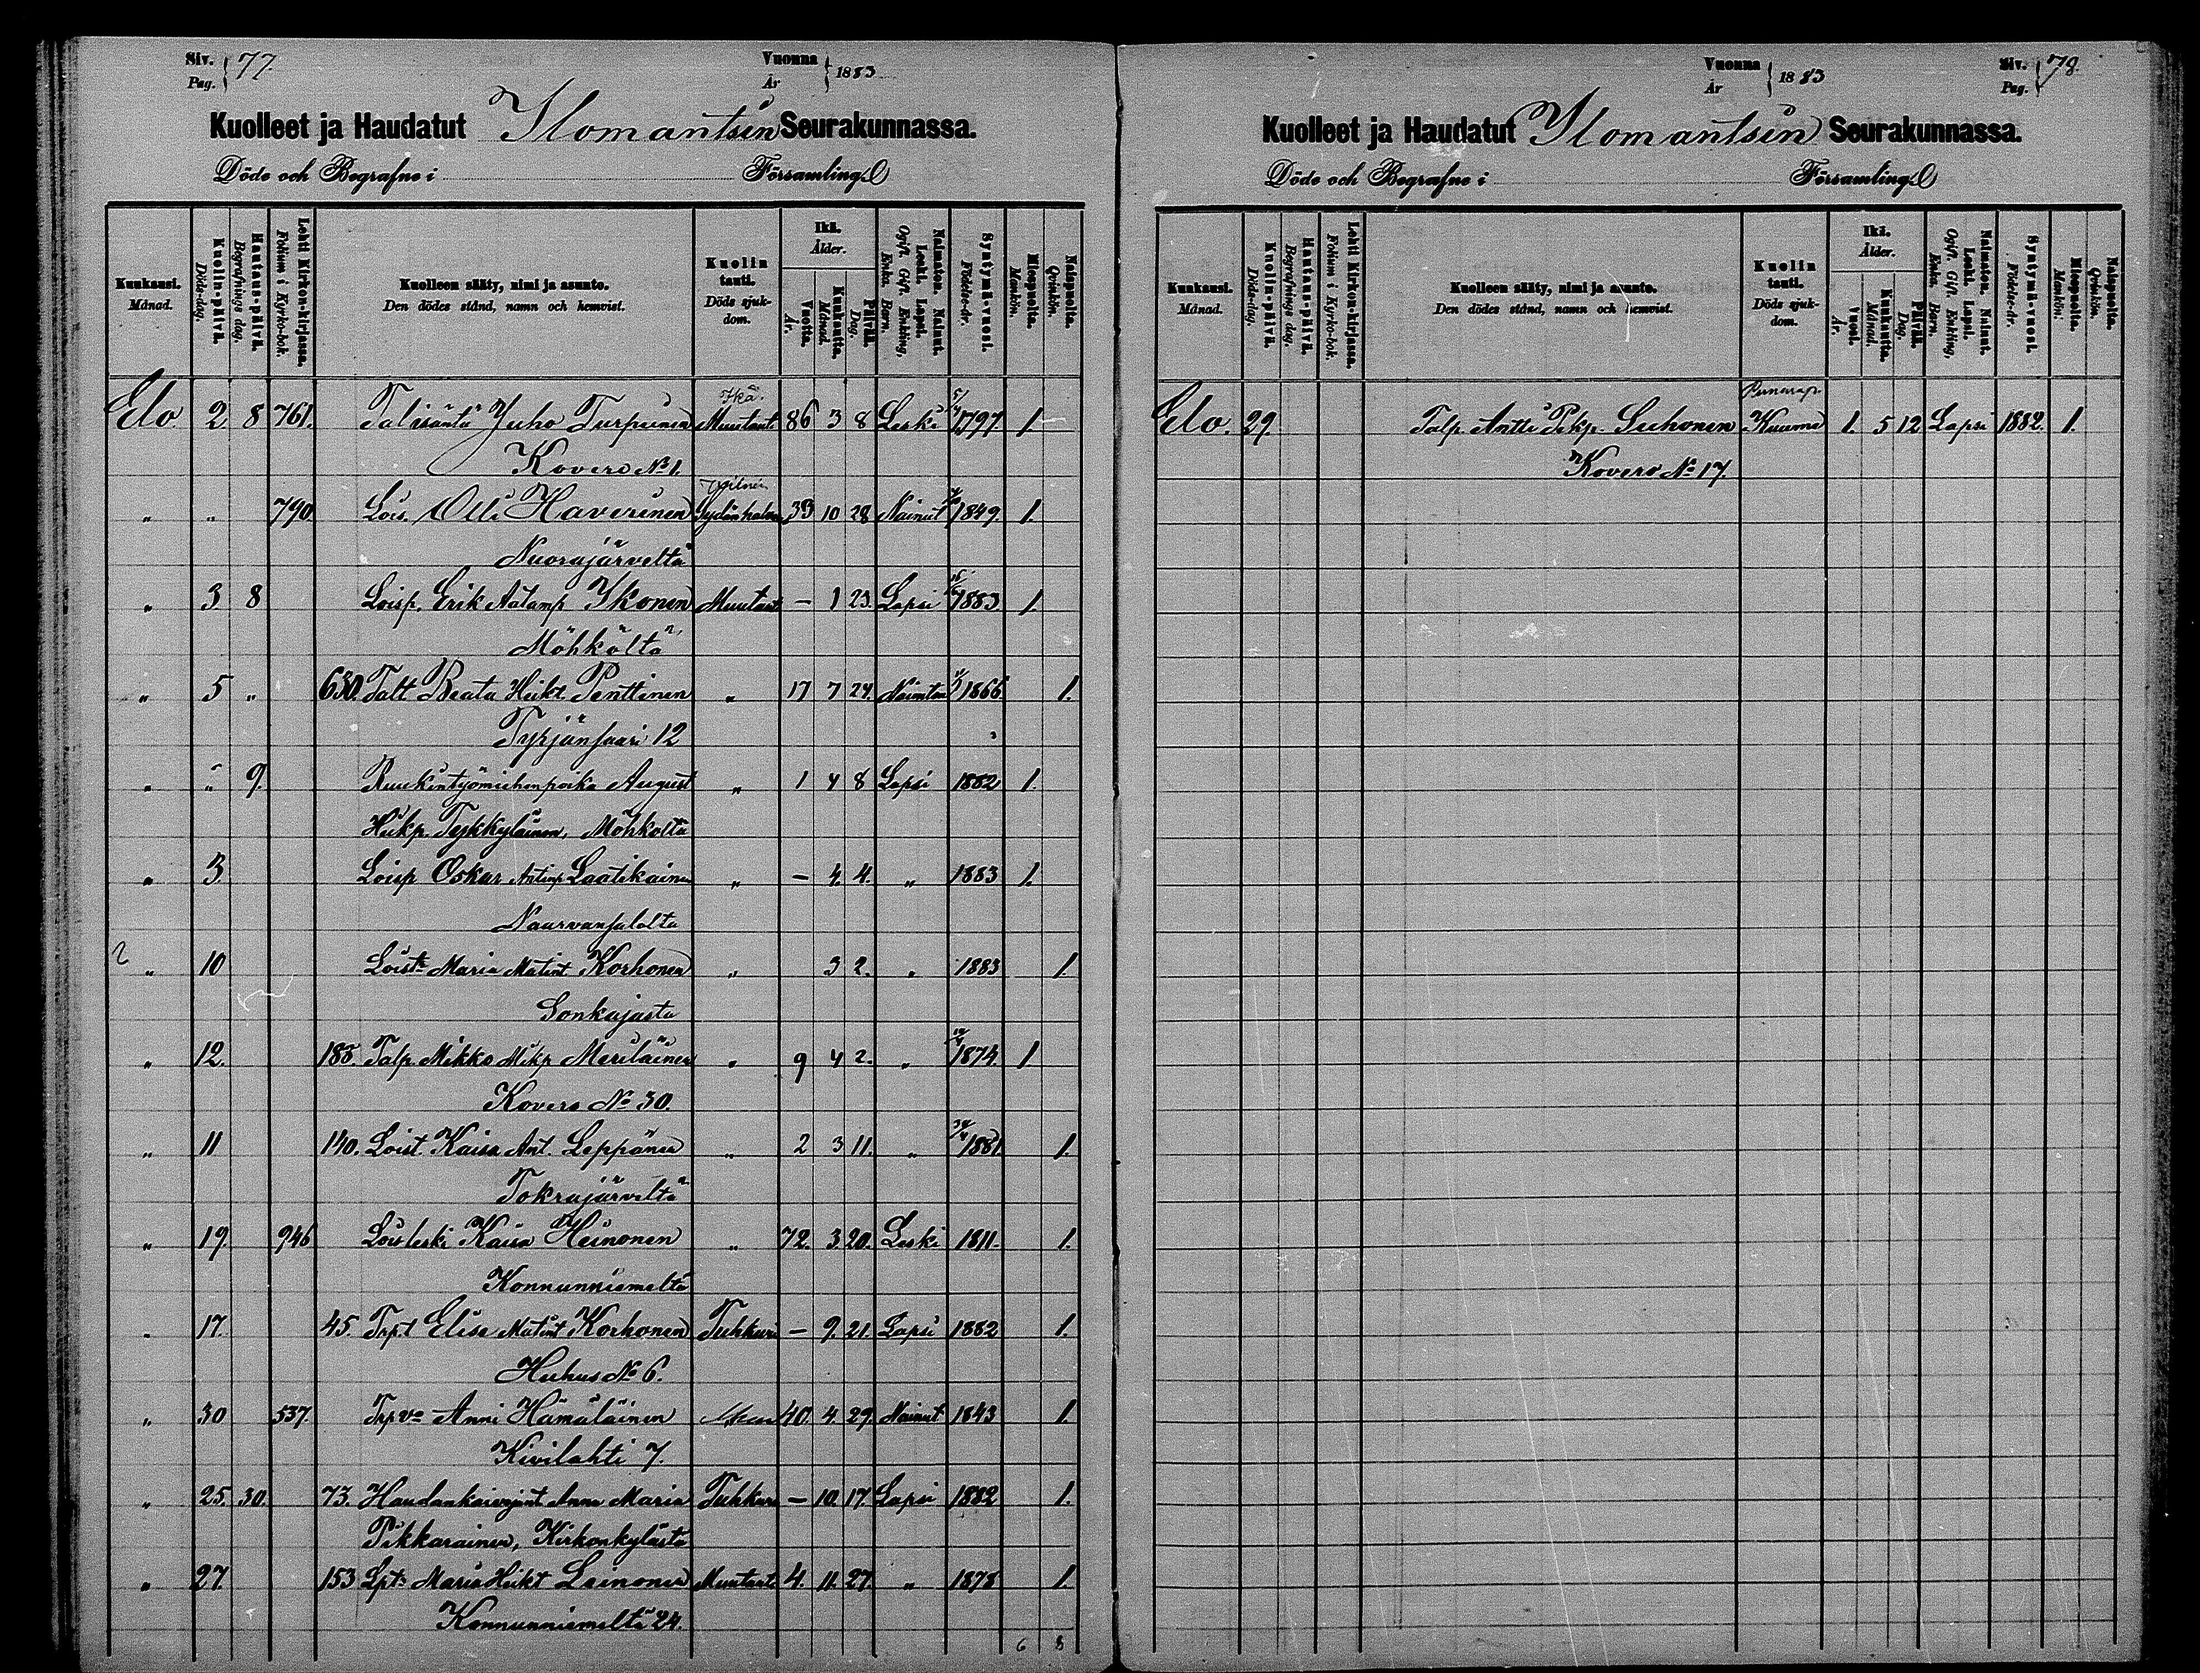 Siv. Pag. 77. Vuonna År 1883
Kuolleet ja Haudatut Ilomantsin Seurakunnassa.
Döde och Begrafne i Församling
Kuukausi. Månad. Kuolin-päivä. Döds-dag. Hautaus-päivä. Begrafnings dag. Lehti Kirkon-kirjassa. Folium i Kyrko-bok. Kuolleen sääty, nimi ja asunto. Den dödes stånd, namn och hemvist. Kuolin tauti. Döds sjuk-dom. Ikä. Ålder. Vuotta. År. Kuukautta. Månad. Päivää. Dag. Naimaton. Nainut. Leski. Lapsi. Ogift. Gift. Enkling, Enka. Barn. Syntymä-vuosi. Födelse-år. Miespuolta. Mankön. Naispuolta. Qvinkön.
Elo. 2 8 761. Talisäntä Juho Turpeinen Ikä. Muutaut. 86 3 8 Leski 1797 1
Kovero No 1.
" " 790 Lois. Olli Haverinen 33 10 28 Nainut 1849. 1.
Nuorajärveltä
" 3 8 Loisp. Erik Aatamp Ikonen Muutaut - 1 23. Lapsi 1883 1.
Möhköltä
" 5 " 630. Talt Beata Heikt. Penttinen " 17 7 24. Naimton 1866 1.
Tyrjänsaari 12
" " 9. Ruukintyömiehenpoika August " 1 4 8 Lapsi 1882 1.
Heikp. Tykkyläinen, Möhköltä
" 3. Loisp Oskar Antinp Laatikainen " - 4. 4. " 1883 1.
Naarvansalolta
" 10 Loist Maria Matint Korhonen " 3 2. " 1883 1.
Sonkajasta
" 12. 188. Talp. Mikko Mikp Meriläinen " 9 4 2. " 1874. 1
Kovero No 30.
" 11 140. Loist Kaisa Ant. Leppänen " 2 3 11. " 1881 1.
Tokrajärveltä
" 19. 946 Loisleski Kaisa Heinonen " 72. 3 20. Leski 1811. 1.
Konnunniemeltä
" 17. 45. Trpt Elise Matint Korhonen Tuhkuri - 9. 21. Lapsi 1882 1.
Huhus No 6.
" 30 537. Trpvo Anni Hämäläinen 40. 4. 29. Nainut 1843 1.
Kivilahti 7.
" 25. 30. 73. Haudankaivajant Anna Maria Tuhkuri - 10. 17. Lapsi 1882 1.
Pikkarainen, Kirkonkylästä
" 27. 153 Lpt. Maria Heikt Leinonen Muutaut 4. 11. 27. " 1878 1.
Konnunniemeltä 24.
6 8
Vuonna År 1883 Siv. Pag. 78.
Kuolleet ja Haudatut Ilomantsin Seurakunnassa.
Döde och Begrafne i Församling
Kuukausi. Månad. Kuolin-päivä. Döds-dag. Hautaus-päivä. Begrafnings dag. Lehti Kirkon-kirjassa. Folium i Kyrko-bok. Kuolleen sääty, nimi ja asunto. Den dödes stånd, namn och hemvist. Kuolin tauti. Döds sjuk-dom. Ikä. Ålder. Vuosi. År. Kuukautta. Månad. Päivää. Dag. Naimaton. Nainut. Leski. Lapsi. Ogift. Gift. Enkling, Enka. Barn. Syntymä-vuosi. Födelse-år. Miespuolta. Mankön. Naispuolta. Qvinkön.
Elo. 29. Talp. Antti Pekp. Suhonen Kuume 1. 5 12 Lapsi 1882. 1.
Kovero No 17.